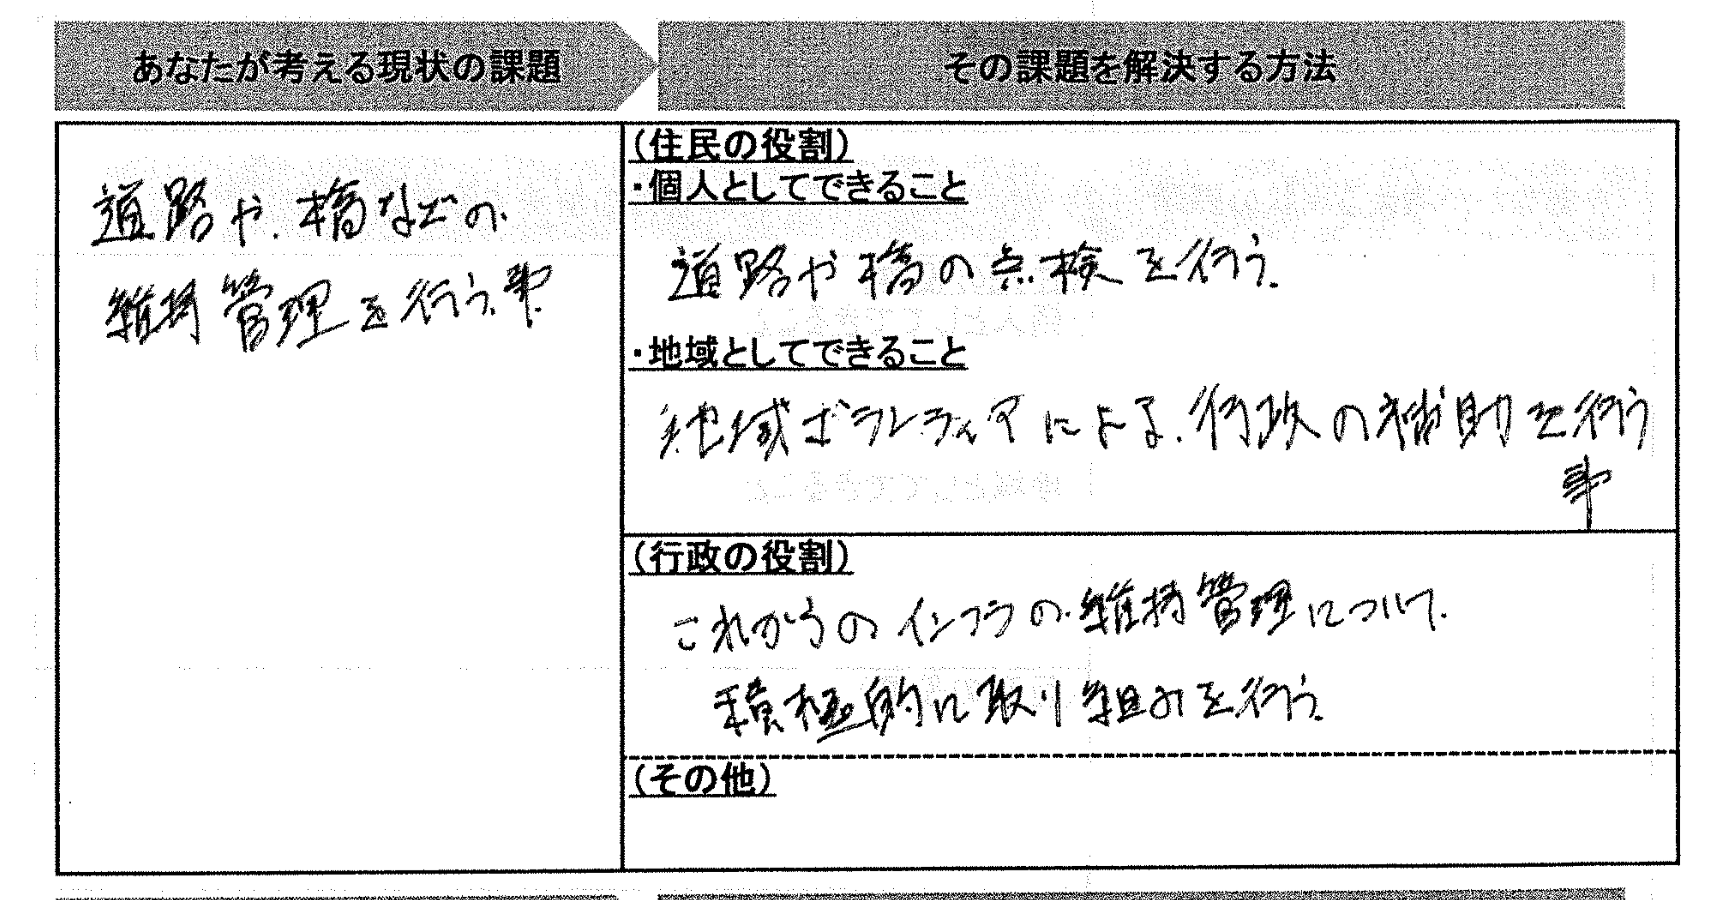 あなたが考える現状の課題
その課題を解決する方法
道路や、橋などの
維持管理を行う事
(住民の役割)
・個人としてできること
道路や橋の点検を行う。
・地域としてできること
地域ボランティアによる、行政の補助を行う
事
(行政の役割)
これからのインフラの維持管理について、
積極的に取り組みを行う。
(その他)